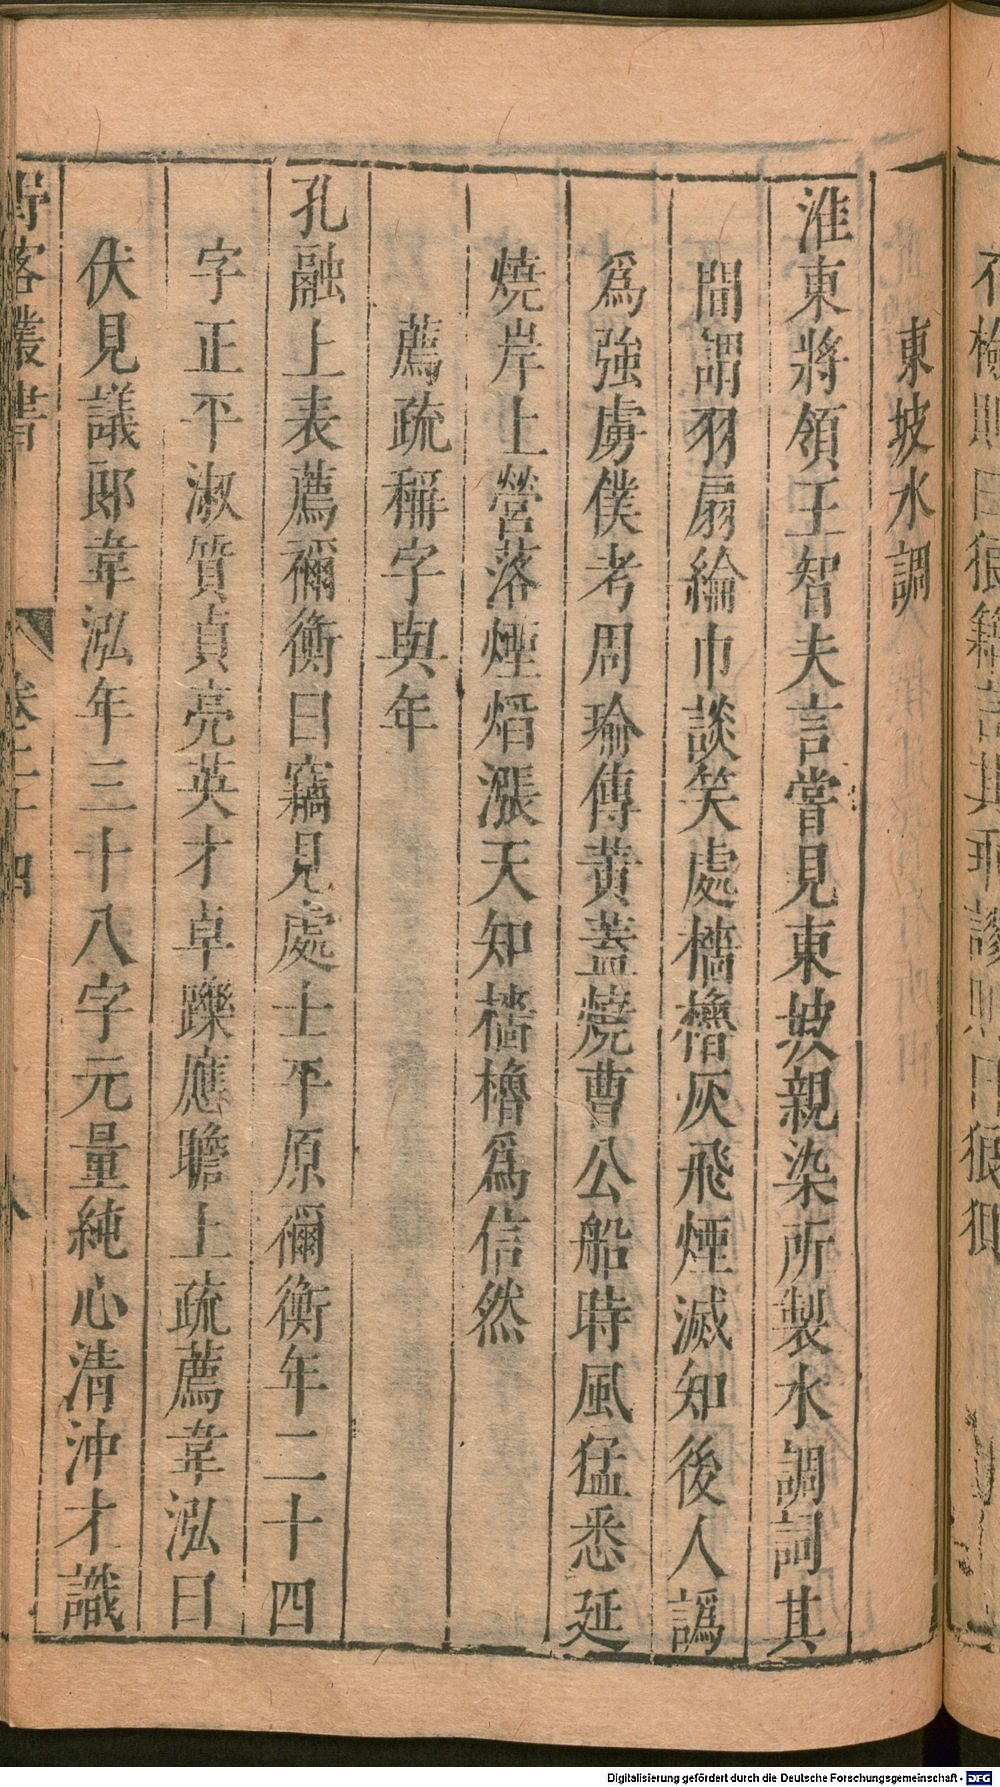 東坡水調
淮東將領王智夫言嘗見東坡親染所製水調詞其
間謂羽扇綸巾談笑處檣櫓灰飛煙滅知後人譌
爲強虜僕考周瑜傳黃蓋燒曹公船時風猛悉延
燒岸上營落煙熖漲天知檣櫓爲信然
薦疏稱字與年
孔融上表薦禰衡曰竊見處士平原禰衡年二十四
字正平淑質貞亮英才卓躒應瞻上疏薦韋泓曰
伏見議郎韋泓年三十八字元量純心清沖才識
野客叢書
卷二十四
八
Digitalisierung gefördert durch die Deutsche Forschungsgemeinschaft - DFG